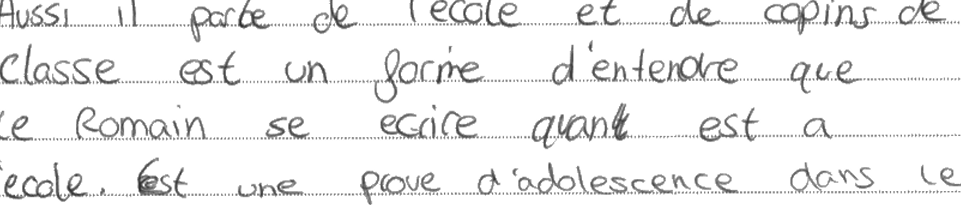 Aussi il parte de l'ecole et de copins de
classe est un forme d'entendre que
le Romain se ecrire quant est a
ecole. Est une prove d'adolescence dans le